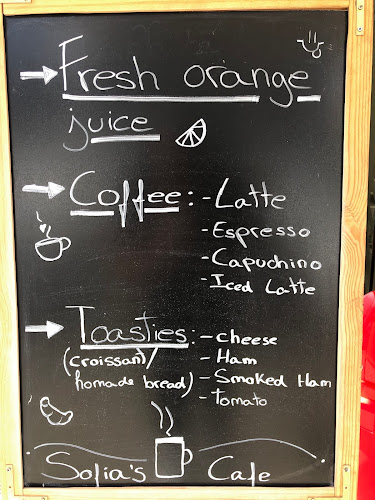 Fresh orange
juice
Coffee: - Latte
- Espresso
- Capuchino
- Iced Latte
Toasties: - cheese
(croissant/ - Ham
homade bread) - Smoked Ham
- Tomato
Sofia's Cafe